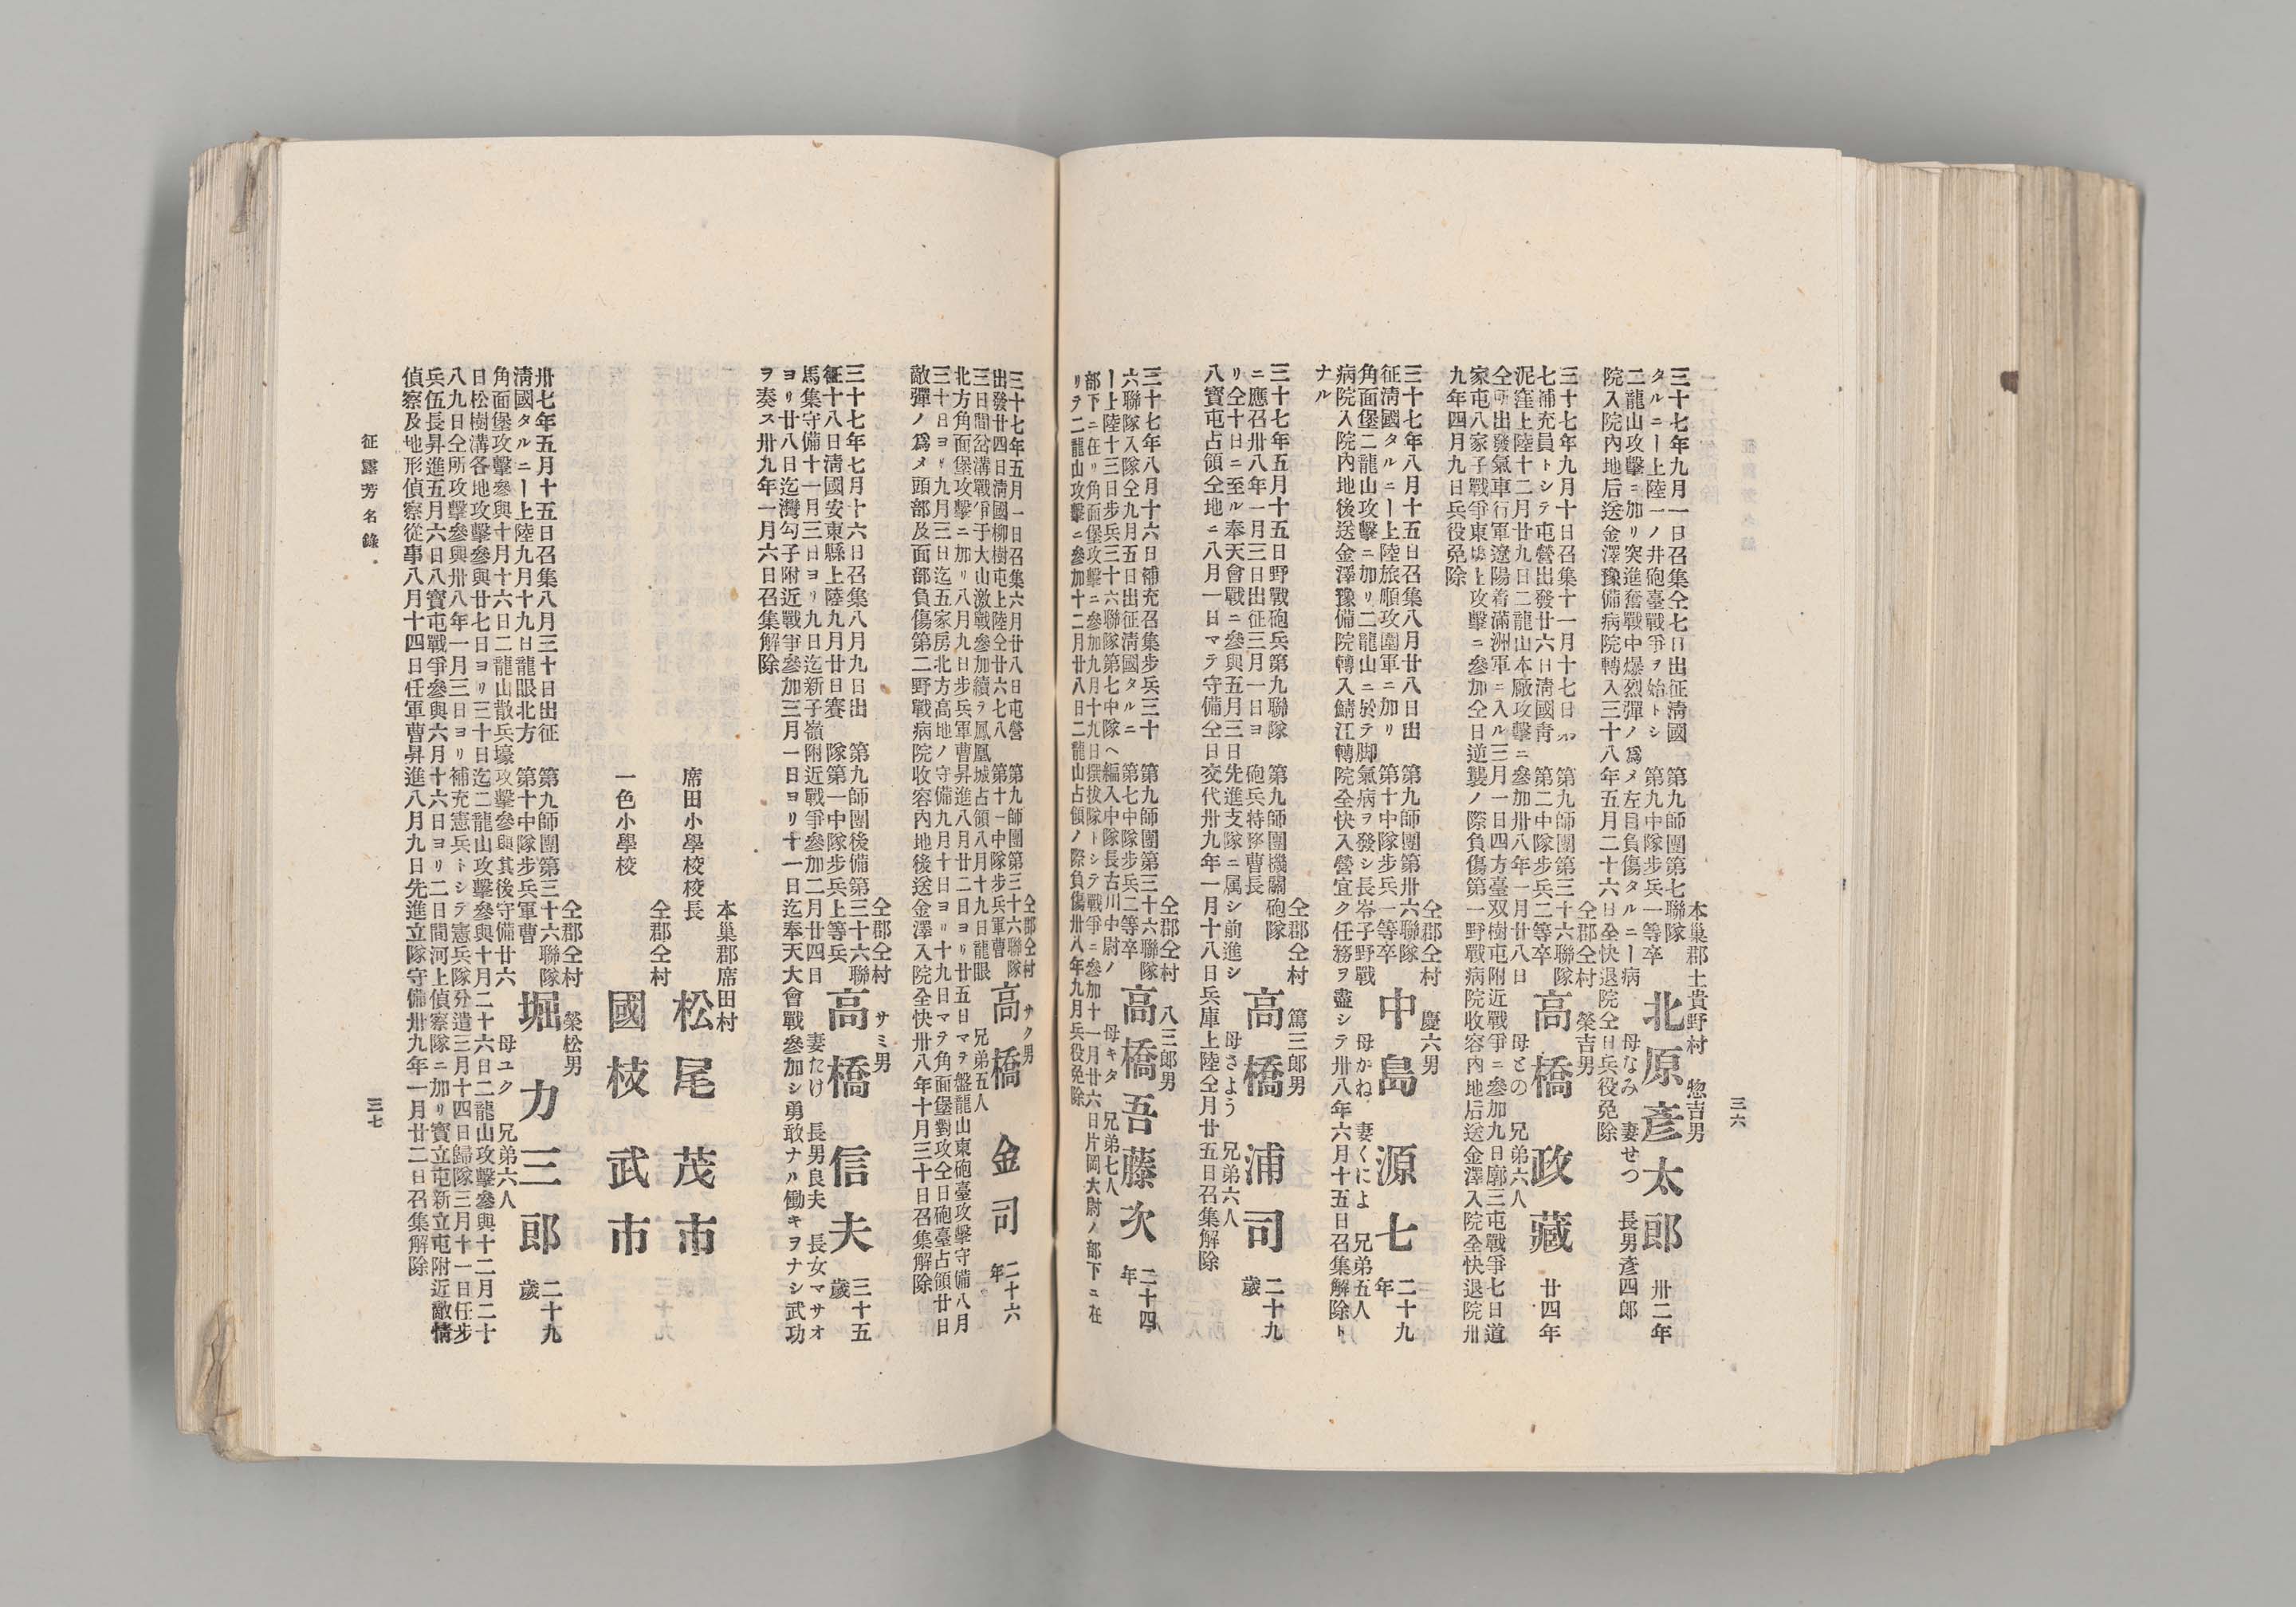 三六
本巢郡土貴野村　惣吉男
第九師團第七聯隊
第九中隊步兵一等卒
北原彥太郎
卅二年
母なみ　妻せつ　長男彥四郎
三十七年九月一日召集仝七日出征淸國
タルニー上陸一ノ井砲臺戰爭ヲ始トシ
二龍山攻擊ニ加リ突進奮戰中爆烈彈ノ爲メ左目負傷タルニー病
院入院內地后送金澤豫備病院轉入三十八年五月二十六日全快退院仝日兵役免除
仝郡仝村　榮吉男
第九師團第三十六聯隊
第二中隊步兵二等卒
高橋政藏
廿四年
母との　兄弟六人
三十七年九月十日召集十一月十七日
七補充員トシテ屯營出發廿六日淸國靑
泥窪上陸十二月廿九日二龍山本廠攻擊ニ參加卅八年一月廿八日
仝所出發氣車行軍遼陽着滿洲軍ニ入ル三月一日四方臺双樹屯附近戰爭ニ參加九日廓三屯戰爭七日道
家屯八家子戰爭東攻擊ニ參加仝日逆襲ノ際負傷第一野戰病院收容內地后送金澤入院全快退院卅
九年四月九日兵役免除
仝郡仝村　慶六男
第九師團第卅六聯隊
第十中隊步兵一等卒
中島源七
二十九年
母かね　妻くによ　兄弟五人
三十七年八月十五日召集八月廿八日出
征淸國タルニー上陸旅順攻圍軍ニ加リ
角面堡二龍山攻擊ニ加リ二龍山ニ於テ脚氣病ヲ發シ長岺子野戰
病院入院內地後送金澤豫備院轉入鯖江轉院全快入營宜ク任務ヲ盡シテ卅八年六月十五日召集解除ト
ナル
仝郡仝村　篤三郎男
第九師團機關砲隊
砲兵特務曹長
高橋浦司
二十九歲
母さよう　兄弟六人
三十七年五月十五日野戰砲兵第九聯隊
ニ應召卅八年一月三日出征三月一日ヨ
リ仝十日ニ至ル奉天會戰ニ參與五月三日先進支隊ニ属シ前進シ
八寶屯占領仝地ニ八月一日マテ守備仝日交代卅九年一月十八日兵庫上陸仝月廿五日召集解除
仝郡仝村　八三郎男
第九師團第三十六聯隊
第七中隊步兵二等卒
高橋吾藤次
二十四年
母キタ　兄弟七人
三十七年八月十六日補充召集步兵三十
六聯隊入隊仝九月五日出征淸國タルニ
ー上陸十三日步兵三十六聯隊第七中隊ヘ編入中隊長古川中尉ノ
部下ニ在リ角面堡攻擊ニ參加九月十九日撰拔隊トシテ戰爭ニ參加十一月廿六日片岡大尉ノ部下ニ在
リテ二龍山攻擊ニ參加十二月廿八日二龍山占領ノ際負傷卅八年九月兵役免除
仝郡仝村　サク男
第九師團第三十六聯隊
第十一中隊步兵軍曹
高橋金司
二十六年
兄弟五人
三十七年五月一日召集六月廿八日屯營
出發廿四日淸國柳樹屯上陸仝廿六七八
三日間岔溝戰爭于大山激戰參加續テ鳳凰城占領八月十九日龍眼
北方角面堡攻擊ニ加リ八月九日步兵軍曹昇進八月廿二日ヨリ廿五日マテ盤龍山東砲臺攻擊守備八月
三十日ヨリ九月三日迄五家房北方高地ノ守備九月十日ヨリ十九日マテ角面堡對攻仝日砲臺占領廿日
敵彈ノ爲メ頭部及面部負傷第二野戰病院收容內地後送金澤入院全快卅八年十月三十日召集解除
仝郡仝村　サミ男
第九師團後備第三十六聯
隊第一中隊步兵上等兵
高橋信夫
三十五歲
妻たけ　長男良夫　長女マサオ
三十七年七月十六日召集八月九日出
征十八日淸國安東縣上陸九月廿日賽
馬集守備十一月三日ヨリ九日迄新子嶺附近戰爭參加二月廿四日
ヨリ廿八日迄灣勾子附近戰爭參加三月一日ヨリ十一日迄奉天大會戰參加シ勇敢ナル働キヲナシ武功
ヲ奏ス卅九年一月六日召集解除
本巢郡席田村
席田小學校校長
松尾茂市
仝郡仝村
一色小學校
國枝武市
仝郡仝村　榮松男
第九師團第三十六聯隊
第十中隊步兵軍曹
堀力三郎
二十九歲
母ユク　兄弟六人
卅七年五月十五日召集八月三十日出征
淸國タルニー上陸九月十九日龍眼北方
角面堡攻擊參與十月十六日二龍山散兵壕攻擊參與其後守備廿六
日松樹溝各地攻擊參與廿七日ヨリ三十日迄二龍山攻擊參與十月二十六日二龍山攻擊參與十二月二十
八九日仝所攻擊參與卅八年一月三日ヨリ補充憲兵トシテ憲兵隊分遣三月十四日歸隊三月十一日任步
兵伍長昇進五月六日八寶屯戰爭參與六月十六日ヨリ二日間河上偵察隊ニ加リ寶立屯新立屯附近敵情
偵察及地形偵察從事八月十四日任軍曹昇進八月九日先進立隊守備卅九年一月廿二日召集解除
征露芳名錄
三七